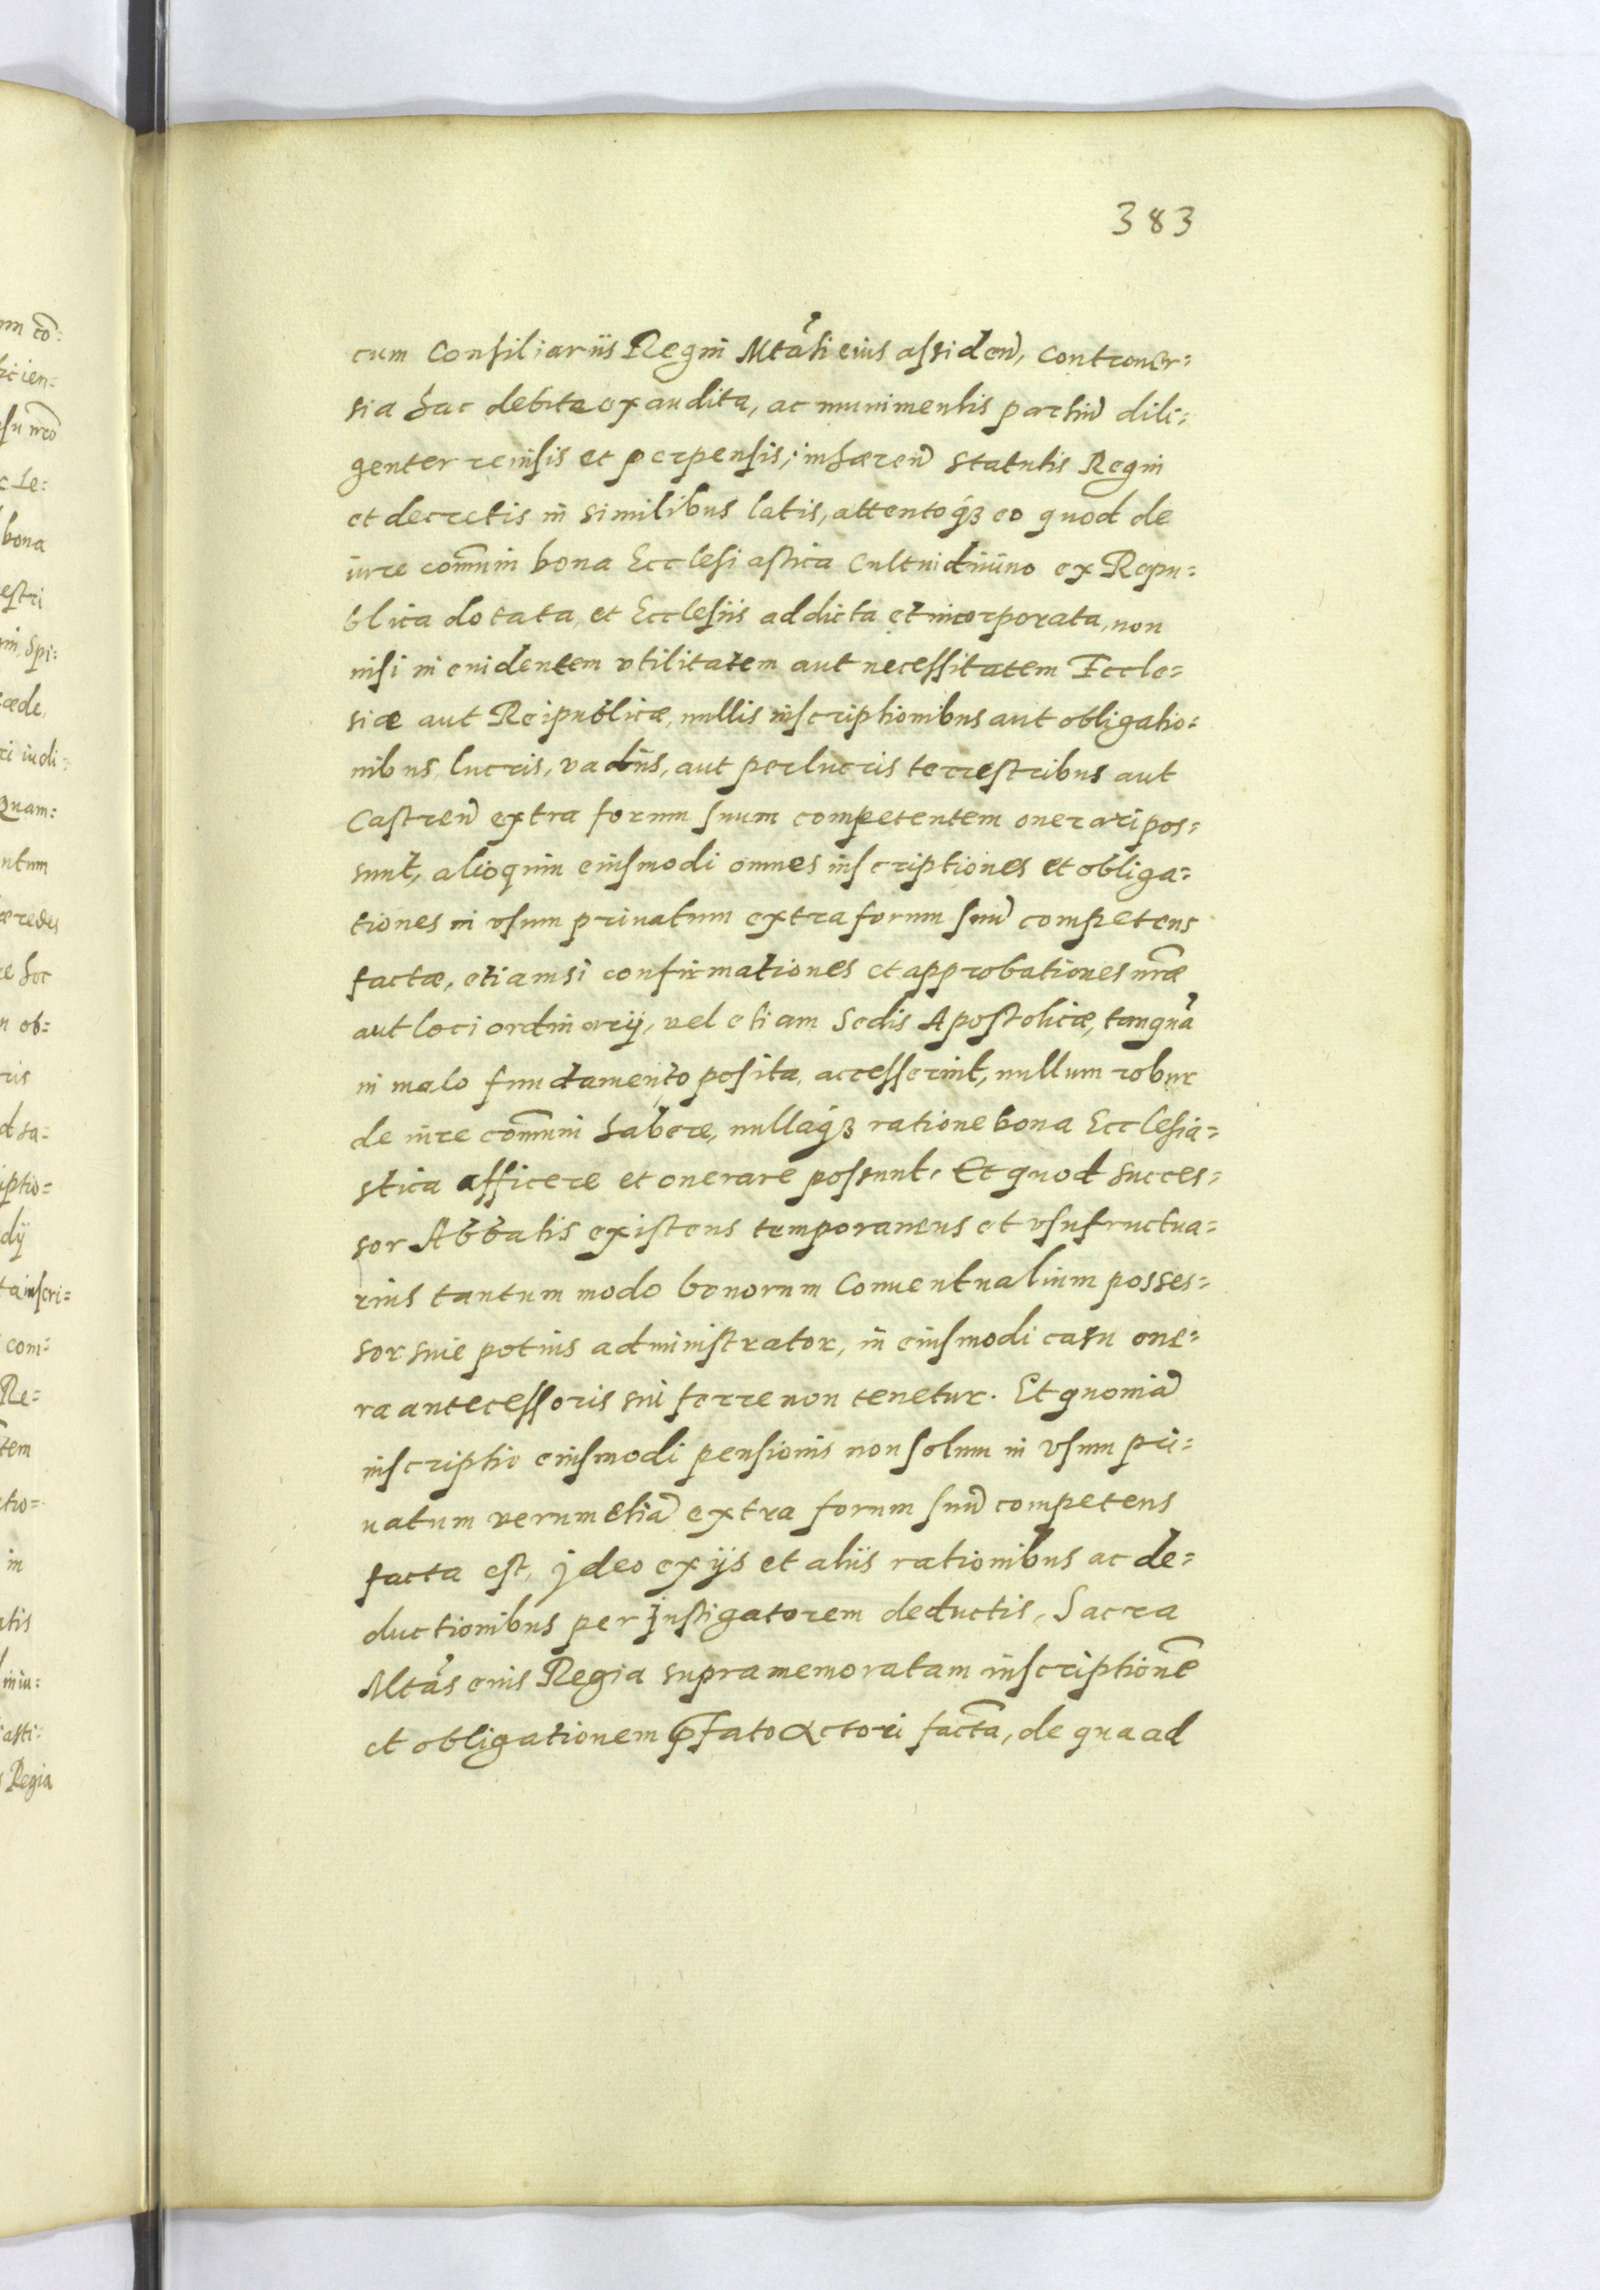 383
cum Consiliariis Regni Mtāti eius assiden̄, Controuer=
sia hac debite exaudita, ac munimentis partiū dili=
genter reuisis et perpensis, inhæren̄ statutis Regni
et decretis in similibus latis, attentoq́3 eo quod de
iure com̄uni bona Ecclesiastica Cultui diuino ex Repu=
blica dotata, et Ecclesiis addicta et incorporata, non
nisi in euidentem vtilitatem aut necessitatem Eccle=
siæ aut Reipublicæ, nullis inscriptionibus aut obligatio=
nibus, lucris, vadiis, aut perlucris terrestribus aut
Castren̄ extra forum suum competentem onerari pos=
sunt, alioquin eiusmodi omnes inscriptiones et obliga=
tiones in vsum priuatum extra forum suū competens
factæ, etiamsi confirmationes et approbationes nr̄æ
aut loci ordinarij, vel etiam Sedis Apostolicæ, tanquā
in malo fundamento posita, accesserint, nullum robur
de iure com̄uni habere, nullaq́3 ratione bona Ecclesia=
stica afficere et onerare possunt. Et quod succes=
sor Abbatis existens temporaneus et vsufructua=
rius tantum modo bonorum Conuentualium posses=
sor siue potius administrator, in eiusmodi casu one=
ra antecessoris sui ferre non tenetur. Et quoniā
inscriptio eiusmodi pensionis non solum in vsum pri=
uatum verum etiā extra forum suū competens
facta est, jdeo ex ijs et aliis rationibus ac de=
ductionibus per jnstigatorem deductis, Sacra
Mtās eius Regia supramemoratam inscriptionē
et obligationem p̄fato Actori factā, de qua ad